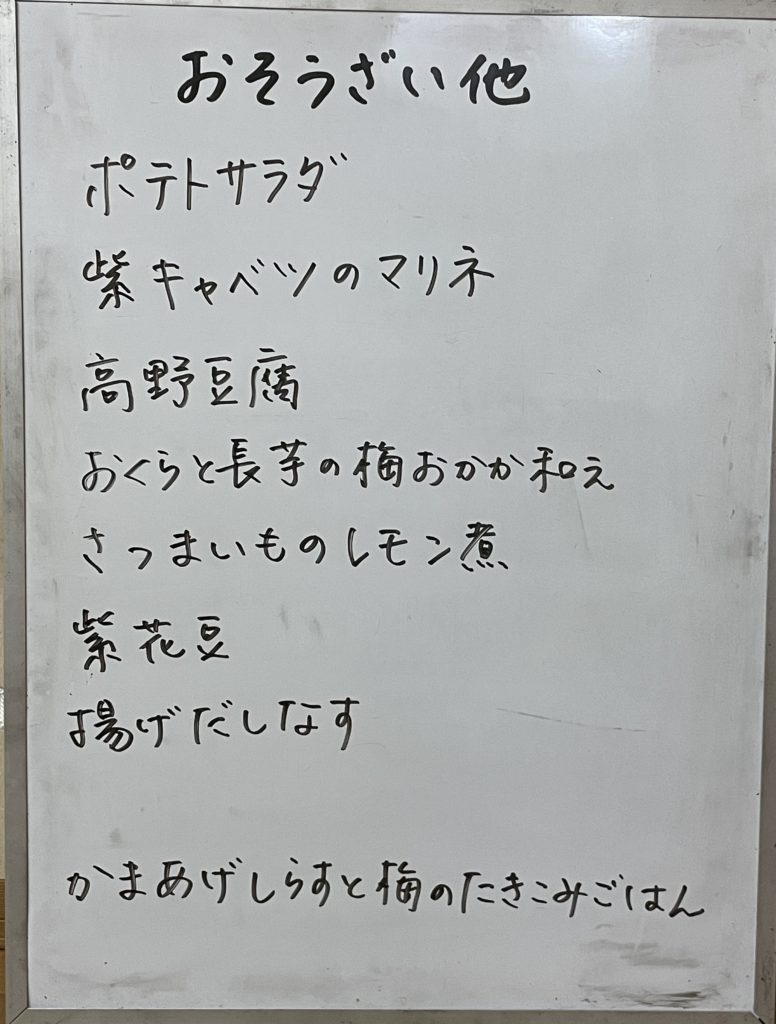 おそうざい他
ポテトサラダ
紫キャベツのマリネ
高野豆腐
おくらと長芋の梅おかか和え
さつまいものレモン煮
紫花豆
揚げだしなす
かまあげしらすと梅のたきこみごはん